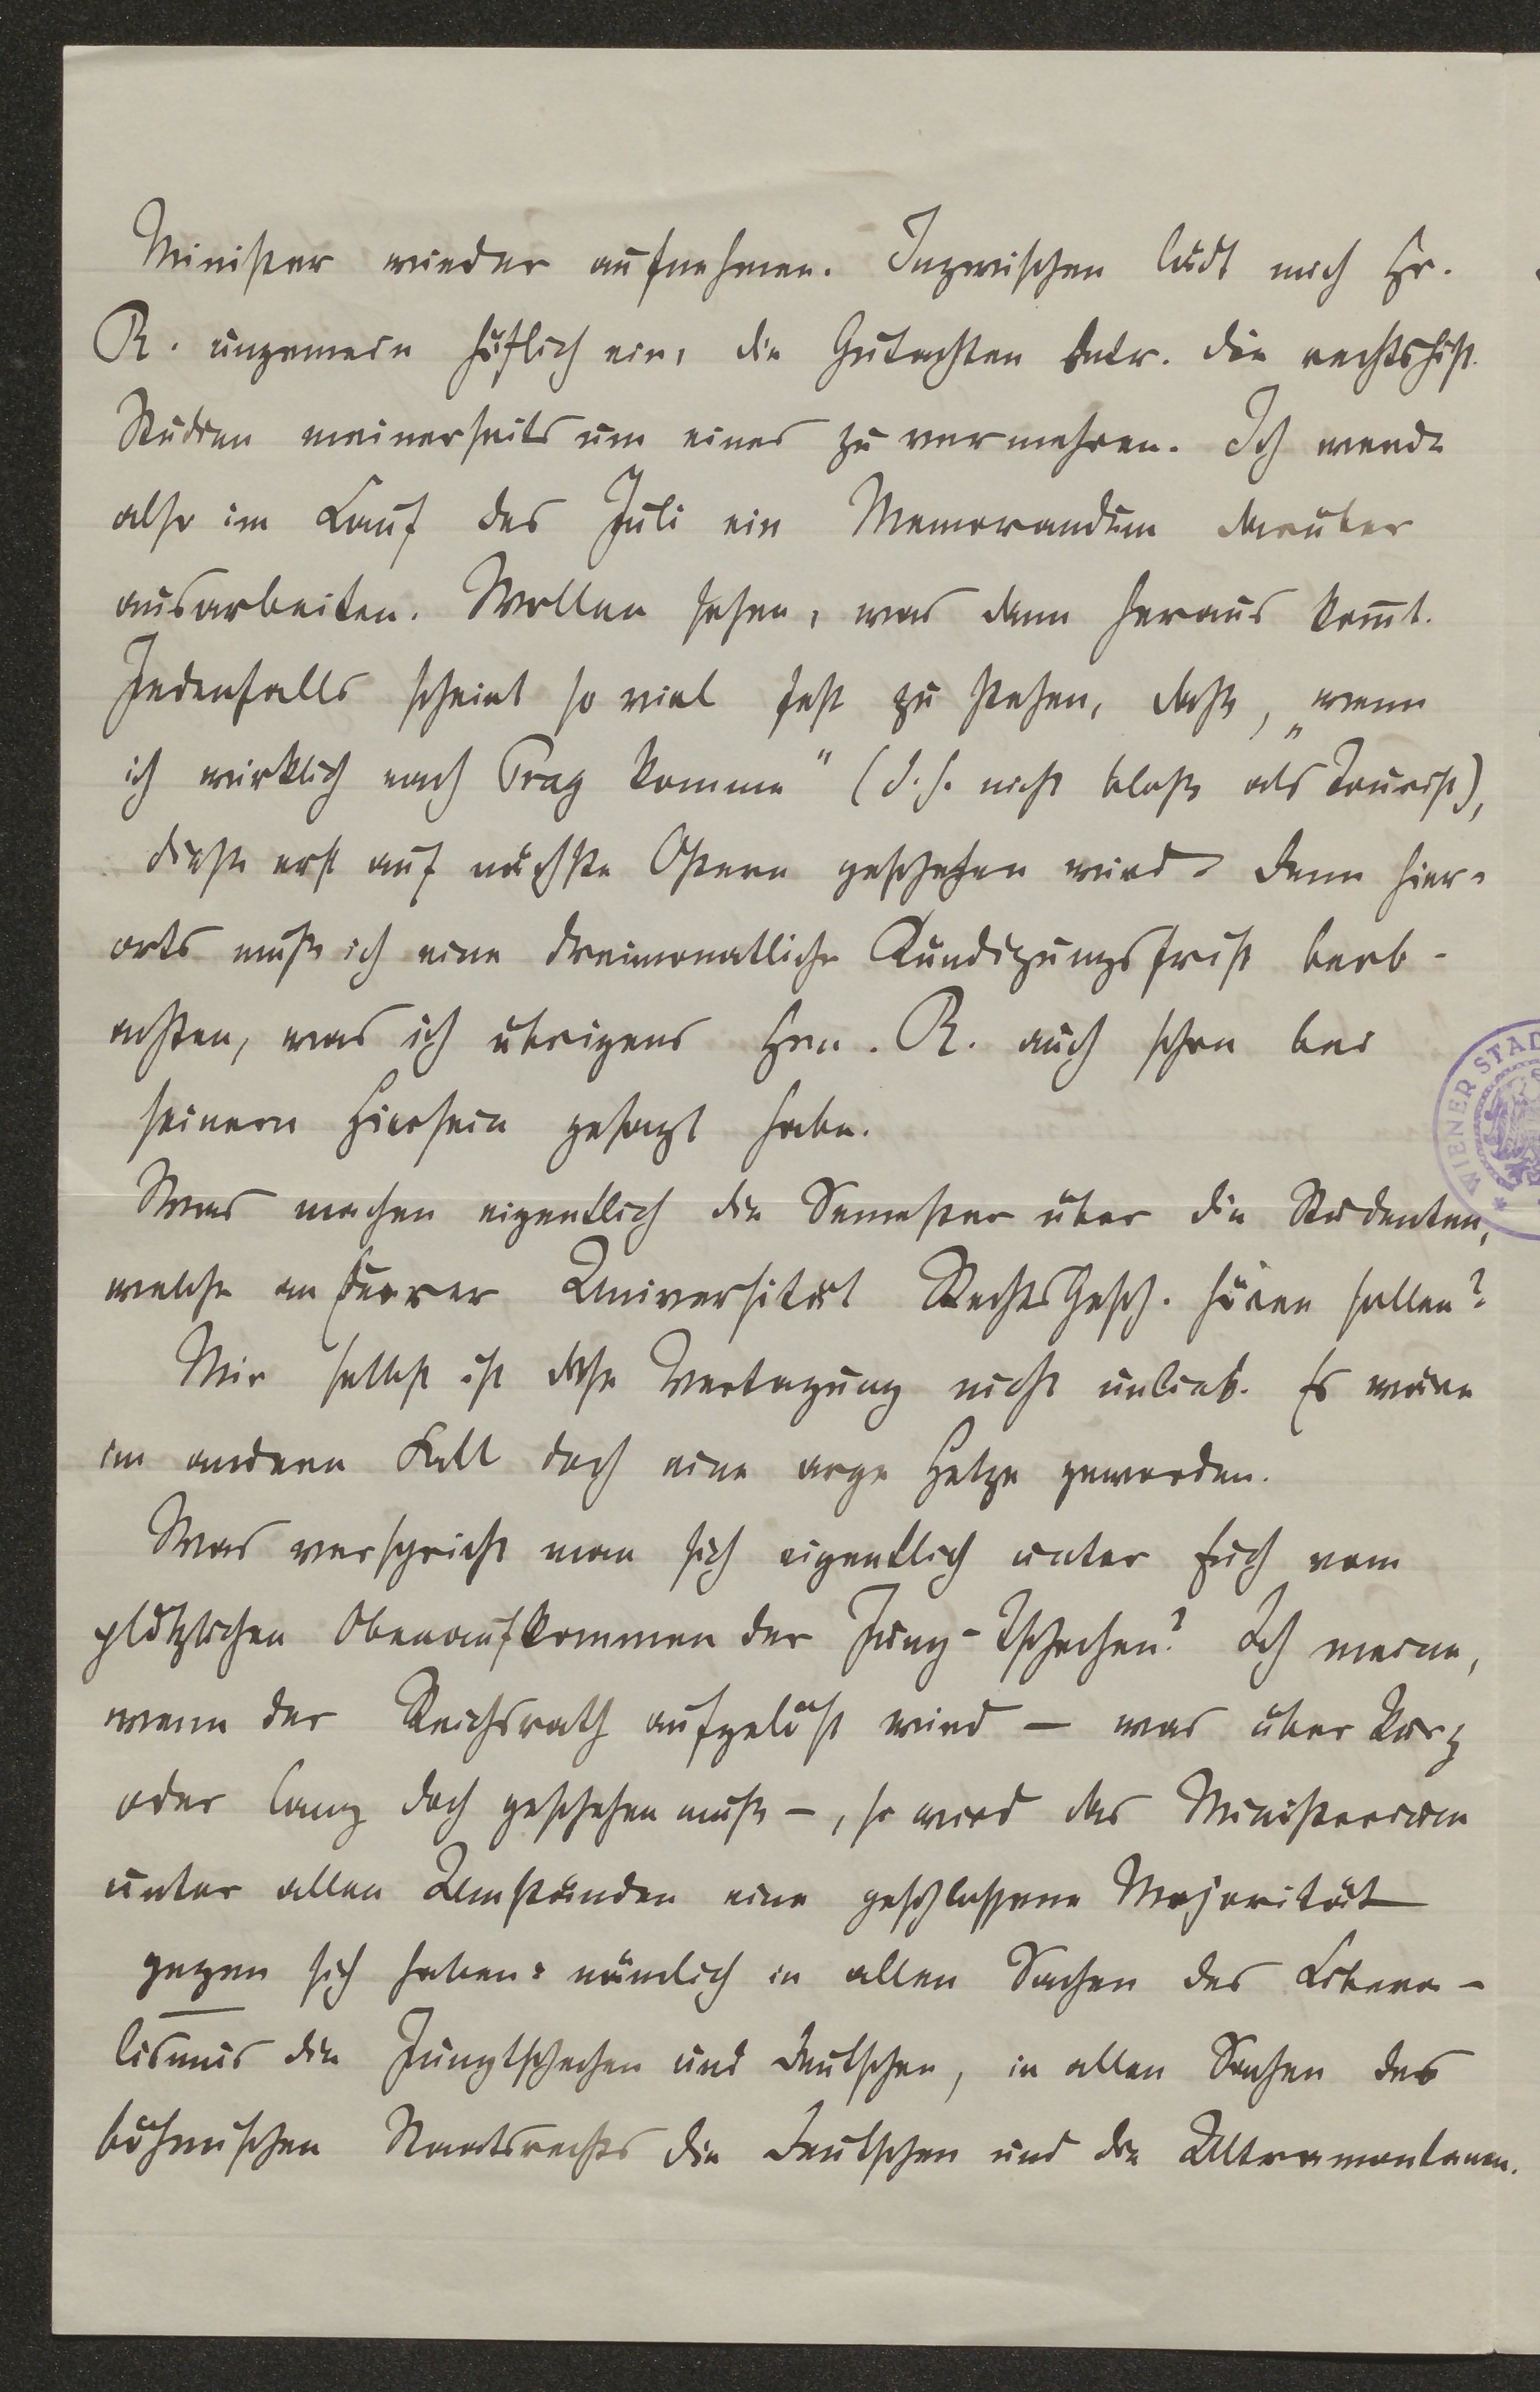 Minister wieder aufnehmen. Inzwischen ladt mich Hr.
R. ungemein höflich ein, die Gutachten betr. die rechtshist.
Studien meinerseits um eines zu vermehren. Ich werde
also im Lauf des Juli ein Memorandum darüber
ausarbeiten. Wollen sehen, was dann heraus kom̅t.
Jedenfalls scheint so viel fest zu stehen, daß, „wenn
ich wirklich nach Prag komme“ (d. h. nicht bloß als Tourist),
dieß erst auf nächste Ostern geschehen wird. Denn hier-
orts muß ich eine dreimonatliche Kündigungsfrist beob-
achten, was ich übrigens Hrn. R. auch schon bei
seinem Hiersein gesagt habe.
Was machen eigentlich die Semester über die Studenten,
welche an Eurer Universität RechtsGesch. hören sollen?
Mir selbst ist diese Vertagung nicht unlieb. Es wäre
im andern Fall doch eine arge Hetze geworden.
Was verspricht man sich eigentlich unter Euch vom
plötzlichen Obenaufkommen der Jung-Tschechen? Ich meine,
wenn der Reichsrath aufgelöst wird – was über kurz
oder lang doch geschehen muß –, so wird das Ministerium
unter allen Umständen eine geschlossene Majorität
gegen sich haben: nämlich in allen Sachen des Libera-
lismus die Jungtschechen und Deutschen, in allen Sachen des
böhmischen Staatsrechts die Deutschen und die Ultramontanen.
WIENER STAD